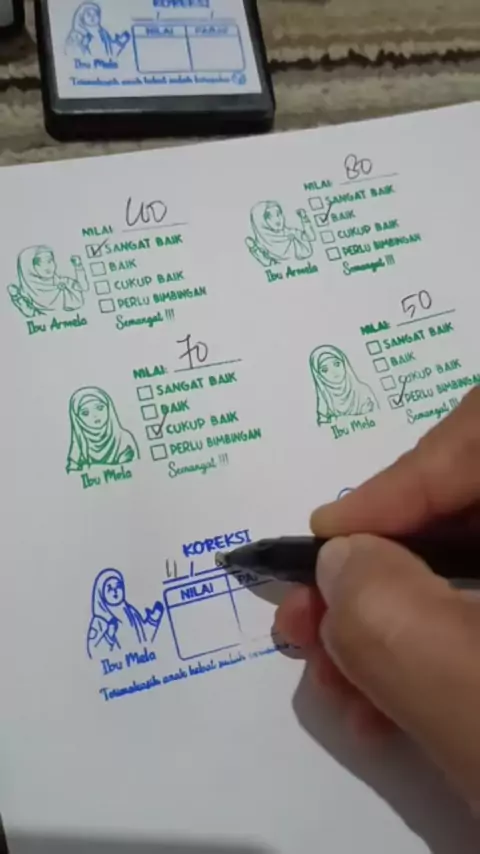 KOREKSI
NILAI PARAF
Ibu Mela
Terimakasih anak hebat sudah
NILAI: 100
SANGAT BAIK
BAIK
CUKUP BAIK
PERLU BIMBINGAN
Ibu Armela Semangat !!!
NILAI: 80
SANGAT BAIK
BAIK
CUKUP BAIK
PERLU BIMBINGAN
Ibu Armela Semangat !!!
NILAI: 70
SANGAT BAIK
BAIK
CUKUP BAIK
PERLU BIMBINGAN
Ibu Mela Semangat !!!
NILAI: 50
SANGAT BAIK
BAIK
CUKUP BAIK
PERLU BIMBINGAN
Ibu Mela
KOREKSI
11 /
NILAI
Ibu Mela
Terimakasih anak hebat sudah